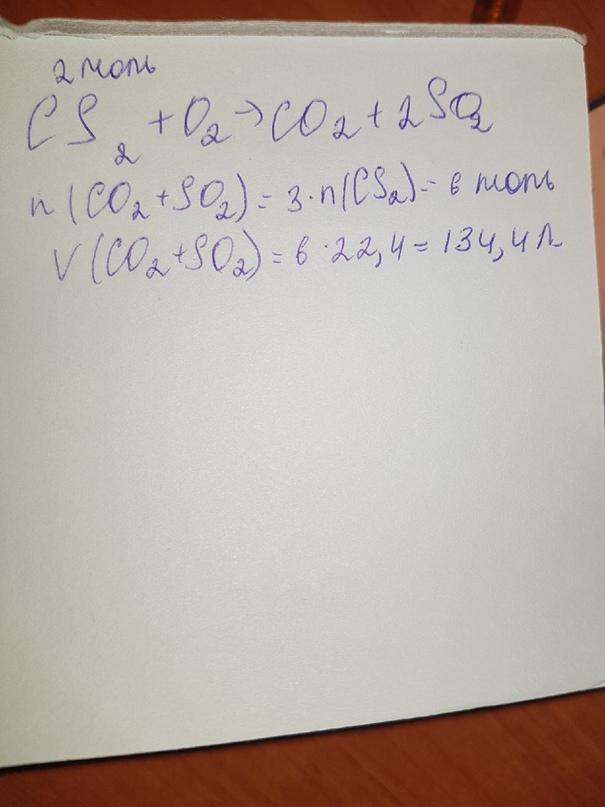 2 моль
CS₂ + O₂ → CO₂ + 2SO₂
n(CO₂+SO₂) = 3·n(CS₂) = 6 моль
V(CO₂+SO₂) = 6·22,4 = 134,4 л